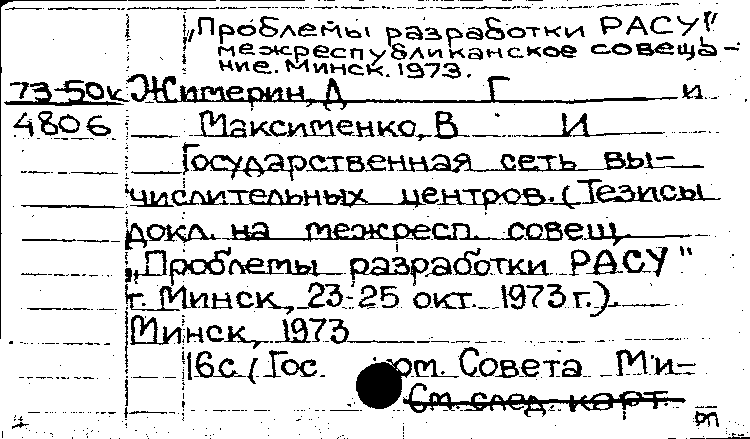 „Проблемы разработки РАСУ"
межреспубликанское совеща-
ние. Минск. 1973.
73-50к Жимерин, Д Г и
4806 Максименко, В И
Государственная сеть вы-
числительных центров. (Тезисы
докл. на межресп. совещ.
„Проблемы разработки РАСУ"
г. Минск, 23-25 окт. 1973 г.).
Минск, 1973
16с (Гос. ком. Совета Ми-
См. след. карт.